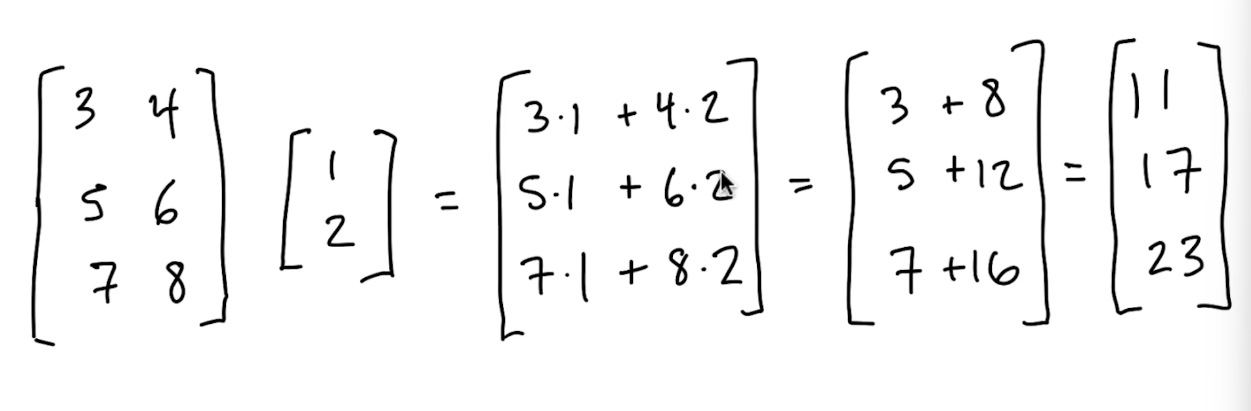 [3 4; 5 6; 7 8] [1; 2] = [3·1 + 4·2; 5·1 + 6·2; 7·1 + 8·2] = [3 + 8; 5 + 12; 7 + 16] = [11; 17; 23]